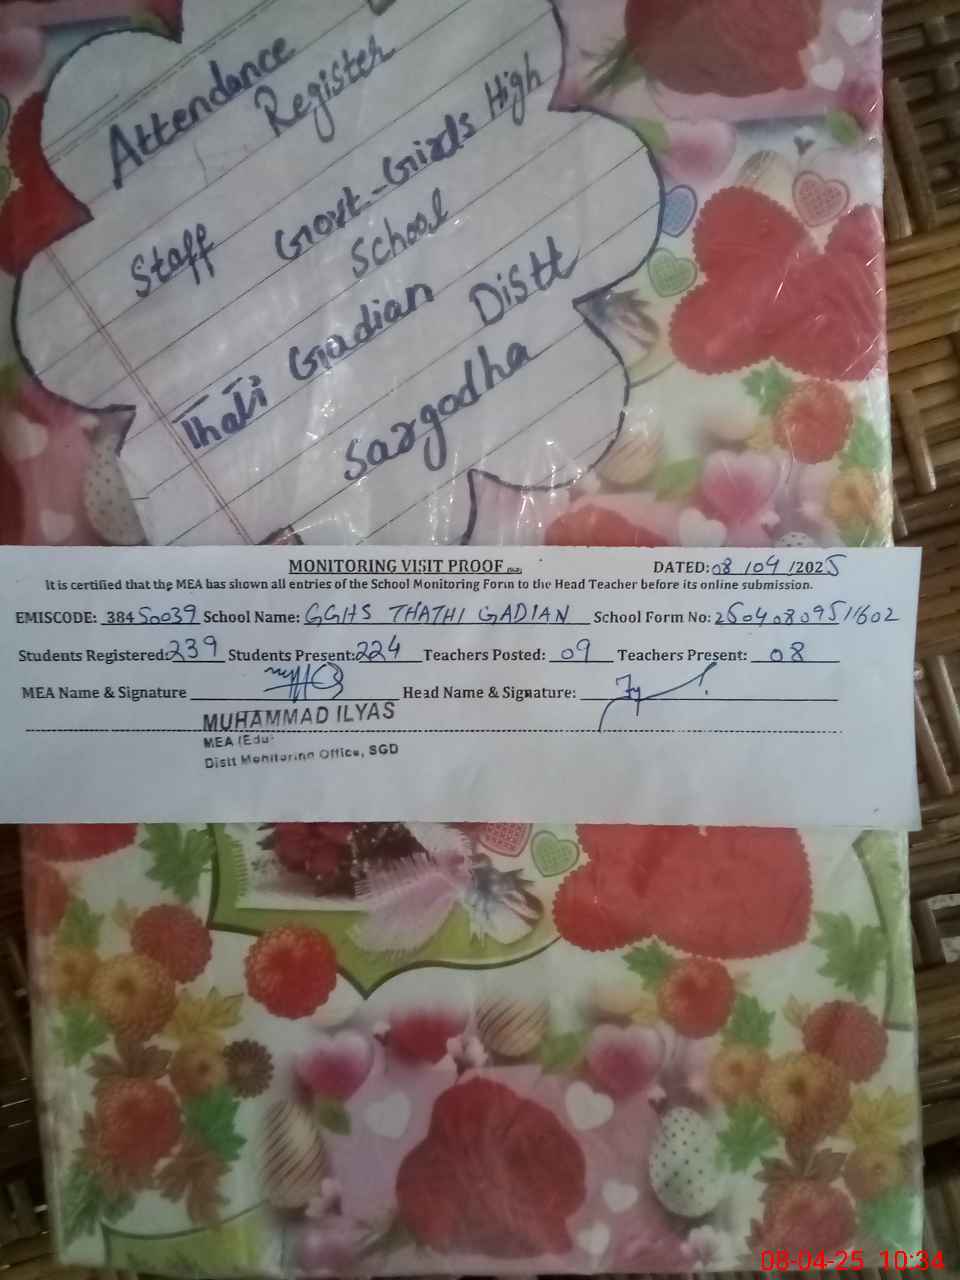 Attendance
Register
Staff Govt-Girls High
School
Thati Gadian Distt
Sargodha
MONITORING VISIT PROOF
DATED: 08/04/2025
It is certified that the MEA has shown all entries of the School Monitoring Form to the Head Teacher before its online submission.
EMISCODE: 38450039 School Name: GGHS THATHI GADIAN School Form No: 25040809511602
Students Registered: 239 Students Present: 224 Teachers Posted: 09 Teachers Present: 08
MEA Name & Signature Head Name & Signature:
MUHAMMAD ILYAS
MEA (Edu-
Distt Monitoring Office, SGD
08-04-25 10:34